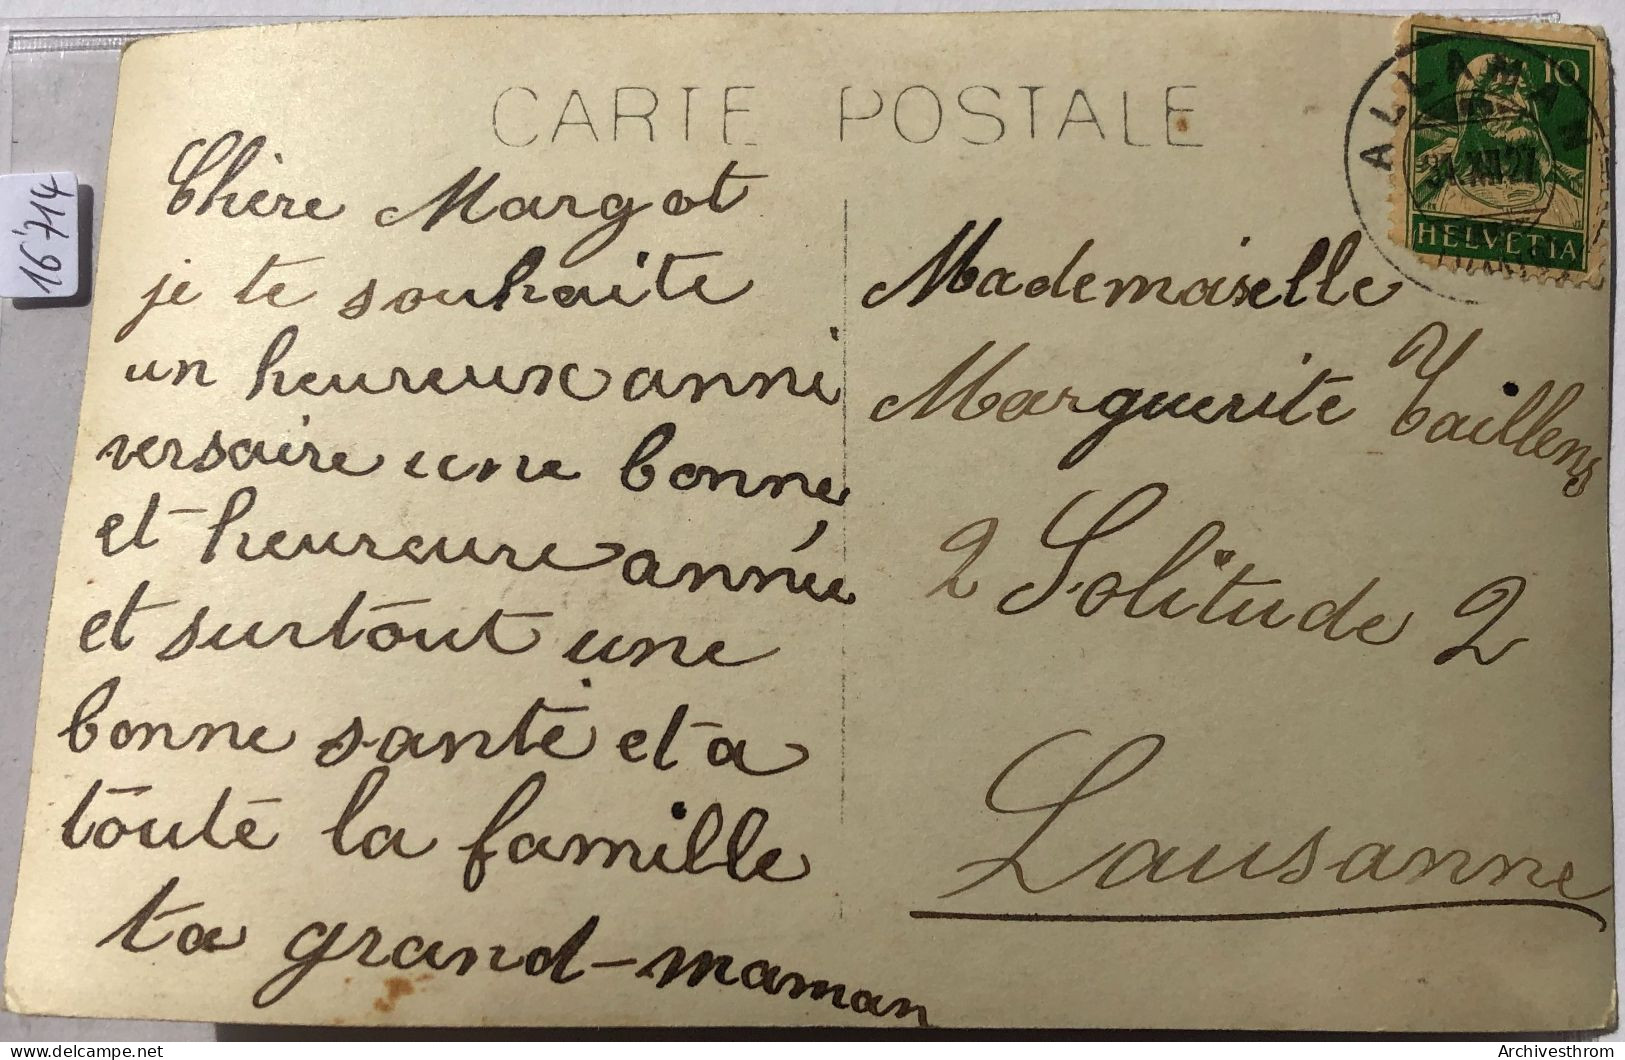 16'714
CARTE POSTALE
Chère Margot
je te souhaite
un heureux anni
versaire une bonne
et heureure année
et surtout une
bonne santé et a
toute la famille
ta grand-maman
ALLAMAN
31.XII.27
10
HELVETIA
Mademoiselle
Marguerite Taillens
2 Solitude 2
Lausanne
delcampe.net
Archivesthrom